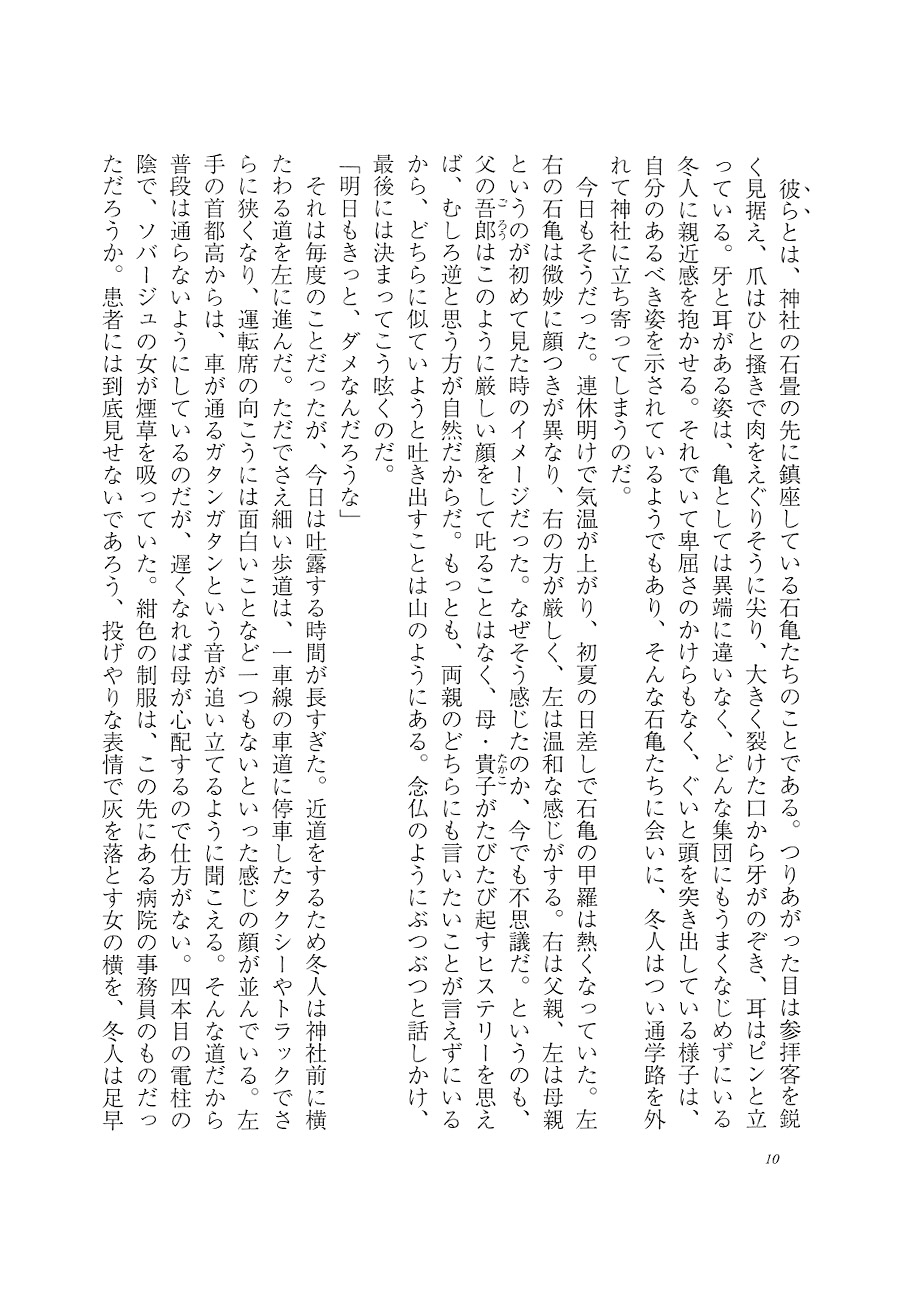 彼らとは、神社の石畳の先に鎮座している石亀たちのことである。つりあがった目は参拝客を鋭
く見据え、爪はひと掻きで肉をえぐりそうに尖り、大きく裂けた口から牙がのぞき、耳はピンと立
っている。牙と耳がある姿は、亀としては異端に違いなく、どんな集団にもうまくなじめずにいる
冬人に親近感を抱かせる。それでいて卑屈さのかけらもなく、ぐいと頭を突き出している様子は、
自分のあるべき姿を示されているようでもあり、そんな石亀たちに会いに、冬人はつい通学路を外
れて神社に立ち寄ってしまうのだ。
今日もそうだった。連休明けで気温が上がり、初夏の日差しで石亀の甲羅は熱くなっていた。左
右の石亀は微妙に顔つきが異なり、右の方が厳しく、左は温和な感じがする。右は父親、左は母親
というのが初めて見た時のイメージだった。なぜそう感じたのか、今でも不思議だ。というのも、
父の吾郎はこのように厳しい顔をして叱ることはなく、母・貴子がたびたび起すヒステリーを思え
ば、むしろ逆と思う方が自然だからだ。もっとも、両親のどちらにも言いたいことが言えずにいる
から、どちらに似ていようと吐き出すことは山のようにある。念仏のようにぶつぶつと話しかけ、
最後には決まってこう呟くのだ。
「明日もきっと、ダメなんだろうな」
それは毎度のことだったが、今日は吐露する時間が長すぎた。近道をするため冬人は神社前に横
たわる道を左に進んだ。ただでさえ細い歩道は、一車線の車道に停車したタクシーやトラックでさ
らに狭くなり、運転席の向こうには面白いことなど一つもないといった感じの顔が並んでいる。左
手の首都高からは、車が通るガタンガタンという音が追い立てるように聞こえる。そんな道だから
普段は通らないようにしているのだが、遅くなれば母が心配するので仕方がない。四本目の電柱の
陰で、ソバージュの女が煙草を吸っていた。紺色の制服は、この先にある病院の事務員のものだっ
ただろうか。患者には到底見せないであろう、投げやりな表情で灰を落とす女の横を、冬人は足早
10